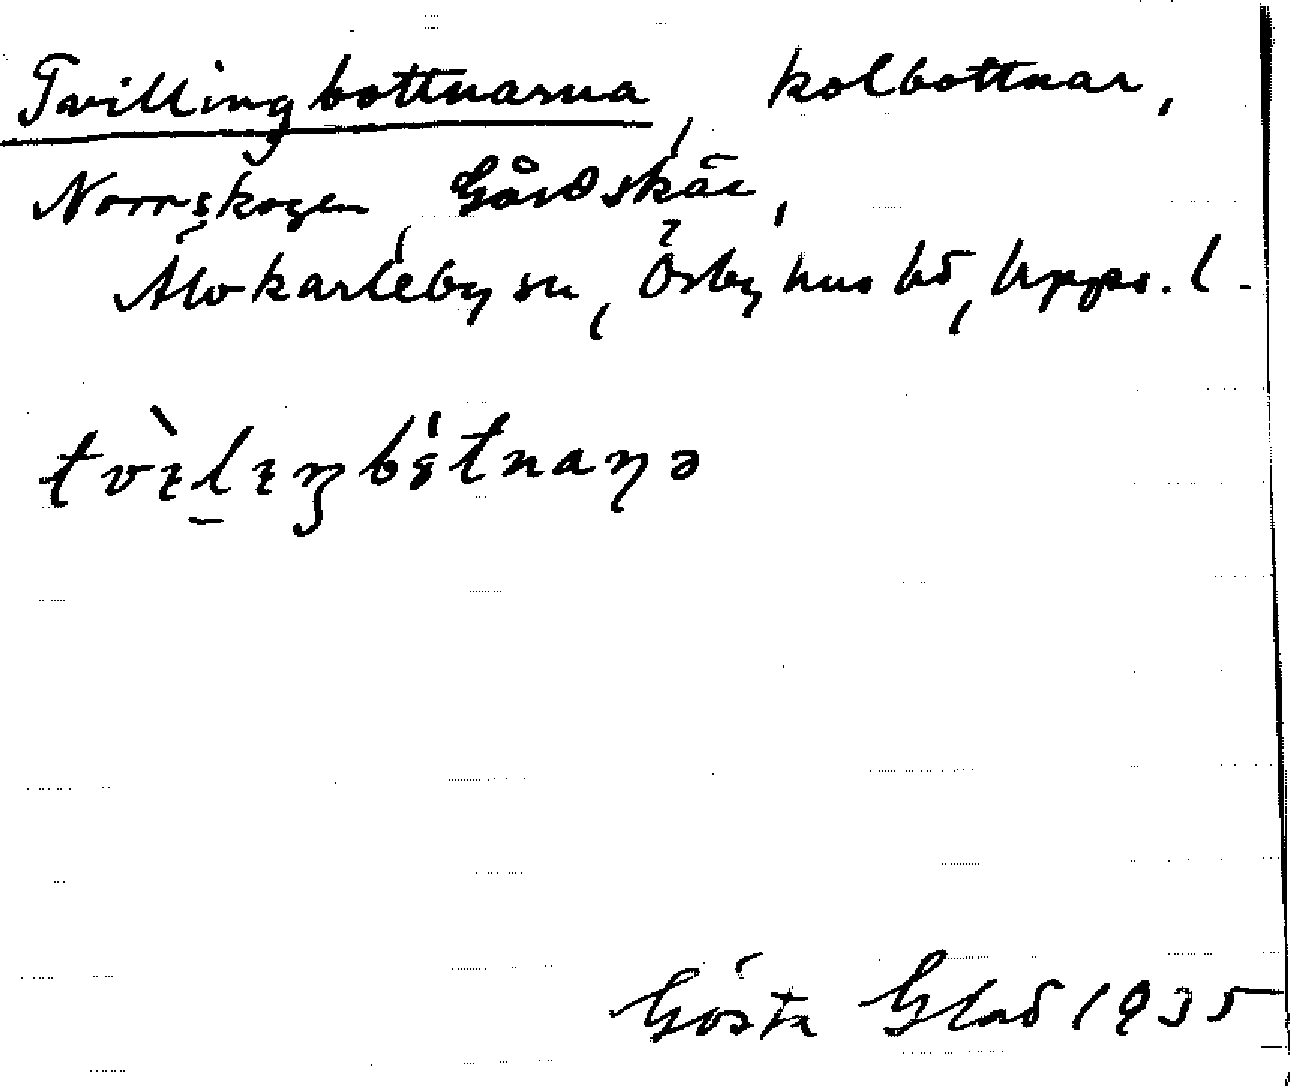 Tvillingbottnarna, kolbottnar,
Norrskogen, Gårdskär,
Älvkarleby sn, Örbyhus hd, Upps. l.
tvìlıŋbɷ́tnaɳə
Gösta Glad 1935